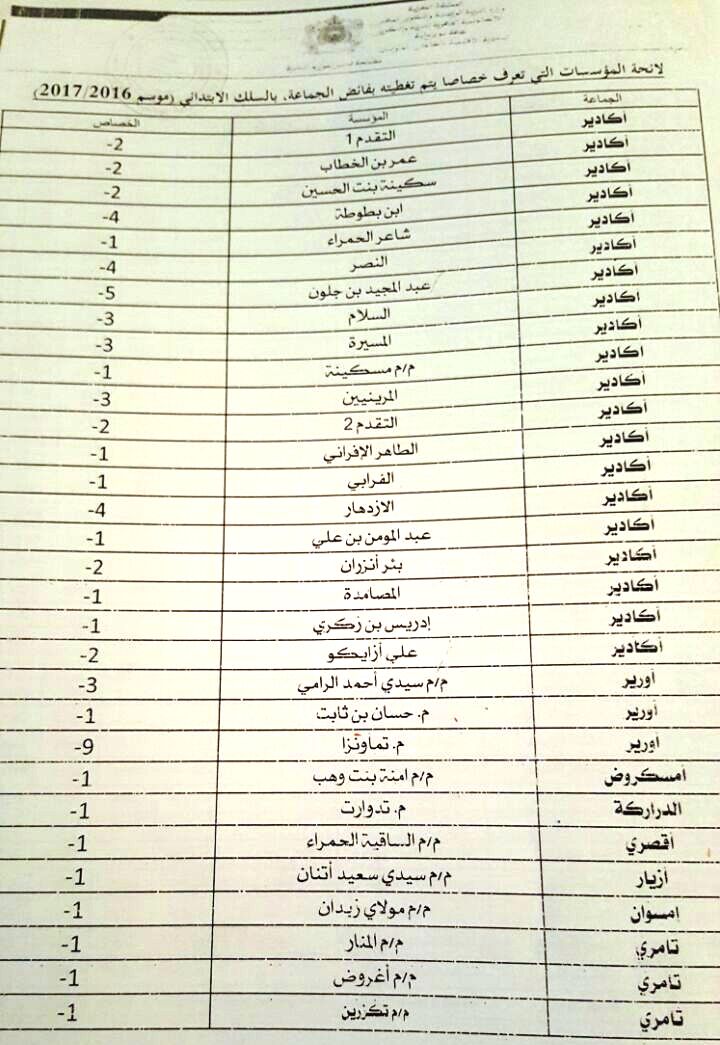 لائحة المؤسسات التي تعرف خصاصا يتم تغطيته بفائض الجماعة، بالسلك الابتدائي (موسم 2017/2016)
الجماعة المؤسسة الخصاص
أكادير التقدم 1 -2
أكادير عمر بن الخطاب -2
أكادير سكينة بنت الحسين -2
أكادير ابن بطوطة -4
أكادير شاعر الحمراء -1
أكادير النصر -4
أكادير عبد المجيد بن جلون -5
اكادير السلام -3
أكادير المسيرة -3
اكادير م/م مسكينة -1
أكادير المرينيين -3
أكادير التقدم 2 -2
أكادير الطاهر الإفراني -1
أكادير الفرابي -1
أكادير الازدهار -4
أكادير عبد المومن بن علي -1
أكادير بئر أنزران -2
أكادير المصامدة -1
أكادير إدريس بن زكري -1
أكادير علي أزايكو -2
أورير م/م سيدي أحمد الرامي -3
أورير م. حسان بن ثابت -1
أورير م. تماونزا -9
أمسكروض م/م امنة بنت وهب -1
الدراركة م. تدوارت -1
أقصري م/م الساقية الحمراء -1
أزيار م/م سيدي سعيد أتنان -1
إمسوان م/م مولاي زيدان -1
تامري م/م المنار -1
تامري م/م أغروض -1
تامري م/م تكزرين -1